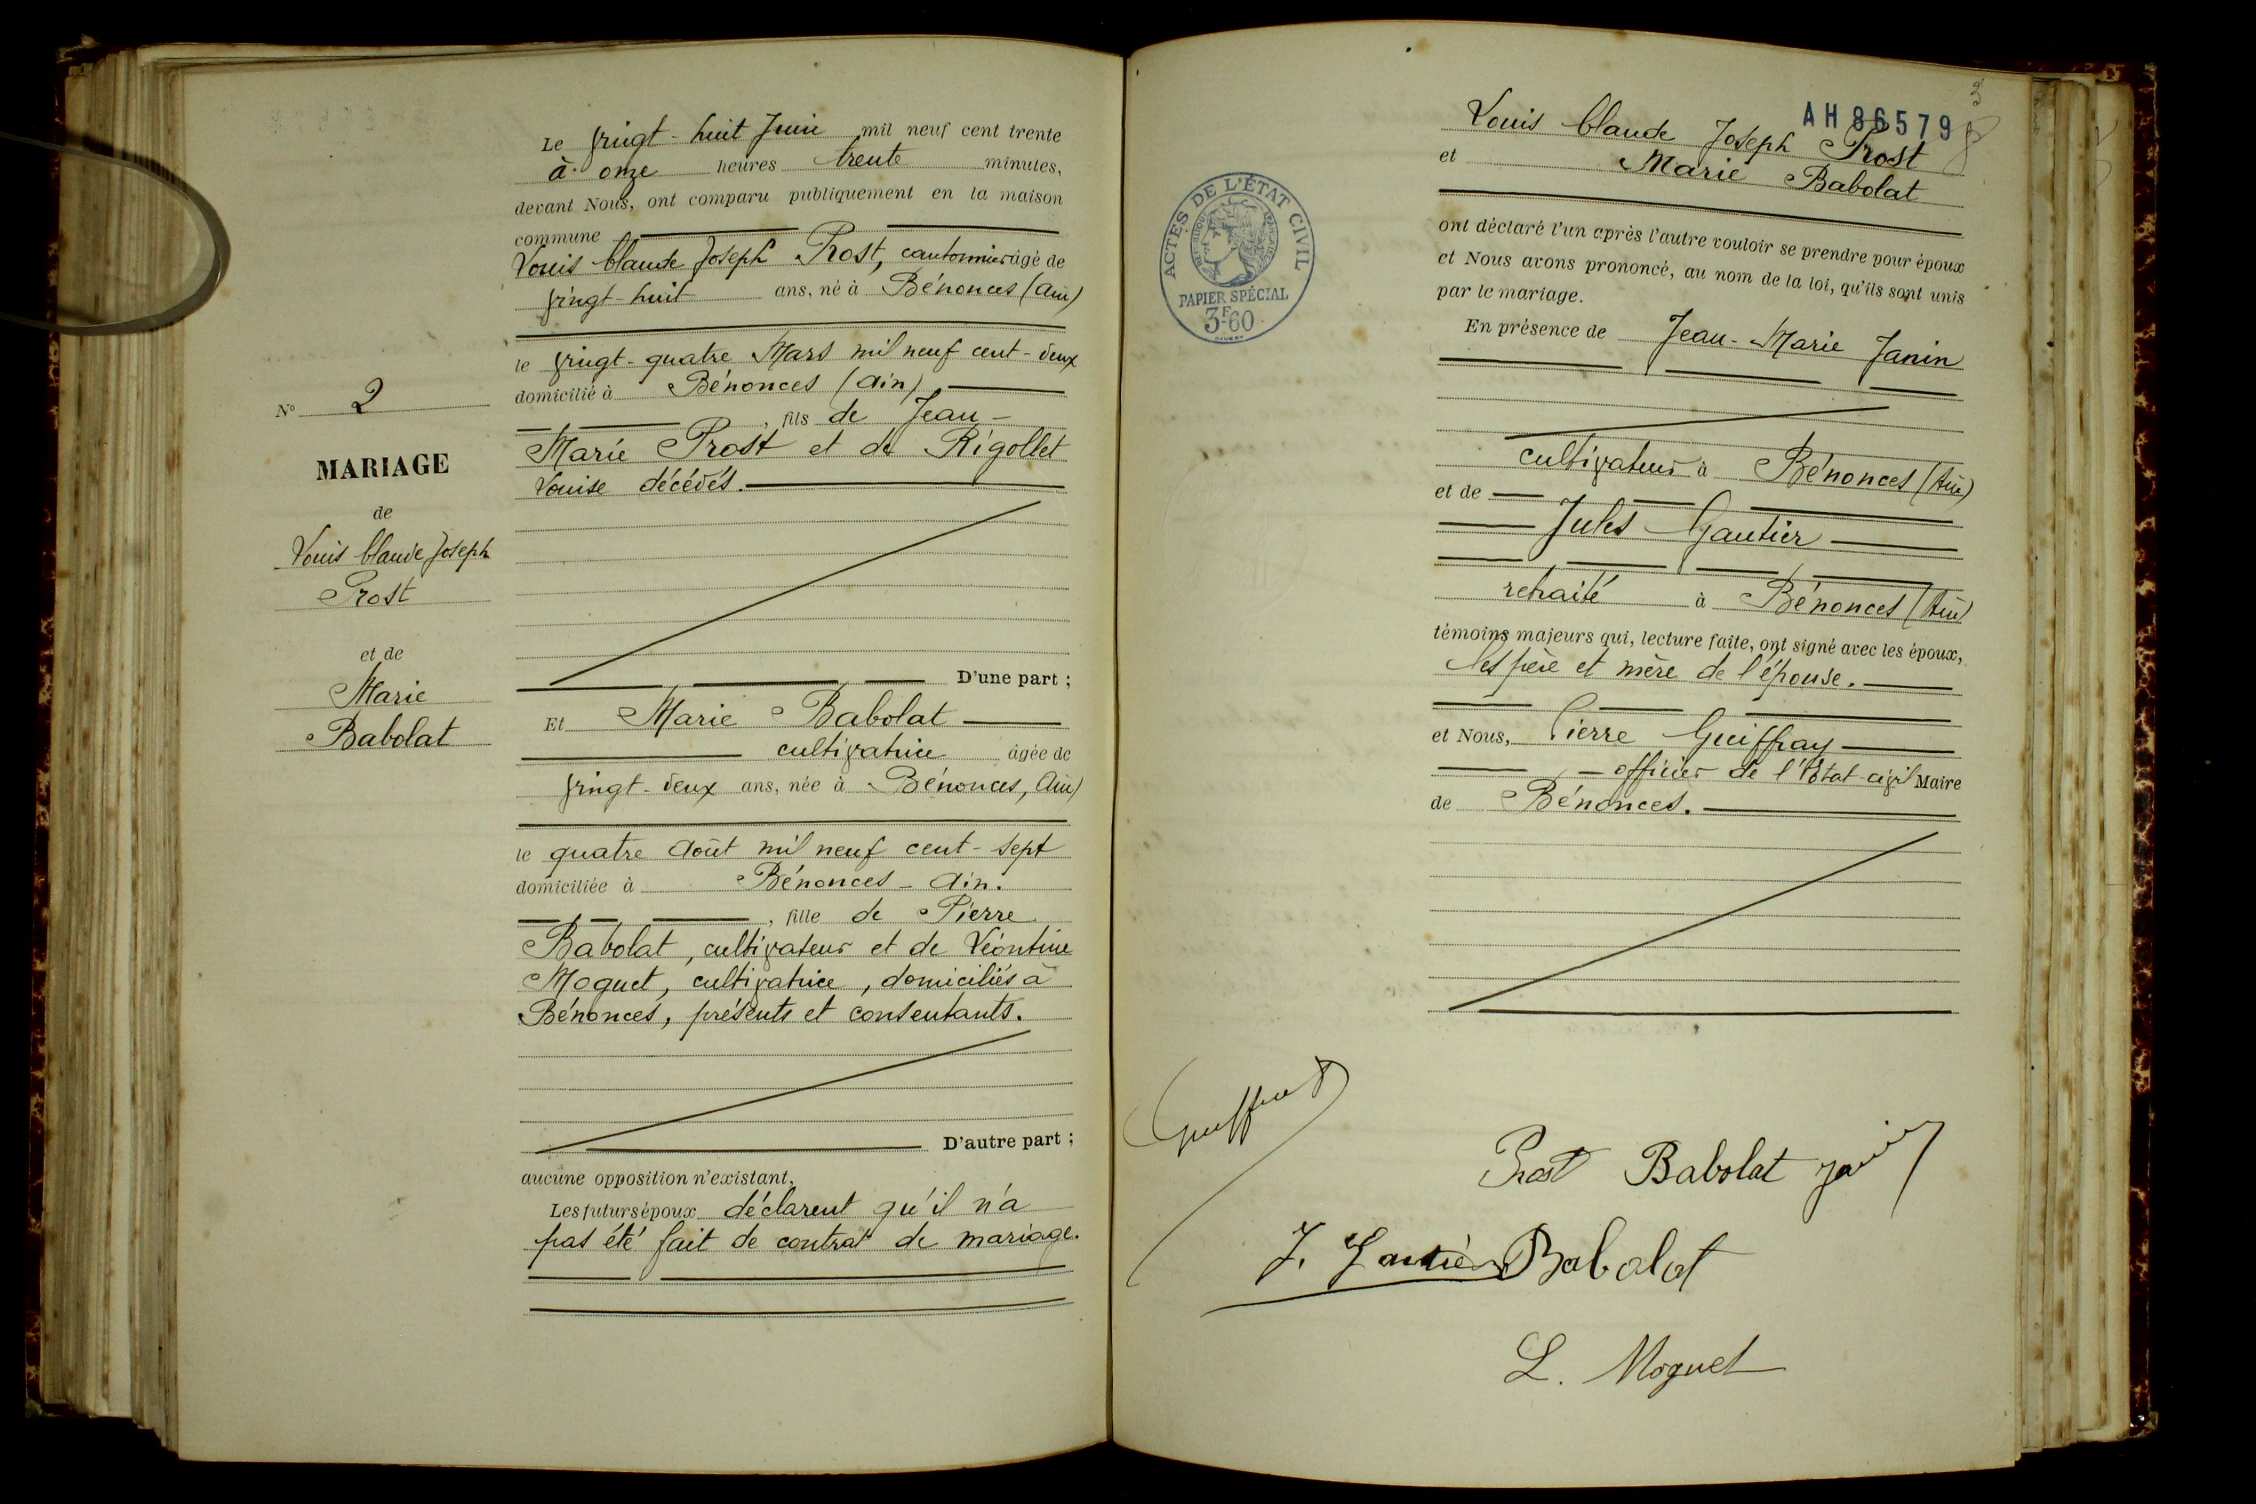 N° 2
MARIAGE
de
Louis Claude Joseph
Prost
et de
Marie
Babolat
Le vingt-huit Juin mil neuf cent trente
à onze heures trente minutes,
devant Nous, ont comparu publiquement en la maison
commune
Louis Claude Joseph Prost, cantonnier âgé de
vingt-huit ans, né à Bénonces (Ain)
le vingt-quatre Mars mil neuf cent-deux
domicilié à Bénonces (Ain),
, fils de Jean-
Marie Prost et de Rigollet
Louise décédés.
D'une part ;
Et Marie Babolat
cultivatrice âgée de
vingt-deux ans, née à Bénonces, Ain)
le quatre Août mil neuf cent-sept
domiciliée à Bénonces - Ain.
, fille de Pierre
Babolat, cultivateur et de Léontine
Moguet, cultivatrice, domiciliés à
Bénonces, présents et consentants.
D'autre part ;
aucune opposition n'existant,
Les futurs époux déclarent qu'il n'a
pas été fait de contrat de mariage.
AH 86579
Louis Claude Joseph Prost
et Marie Babolat
ACTES DE L'ÉTAT CIVIL
PAPIER SPÉCIAL
3F60
ont déclaré l'un après l'autre vouloir se prendre pour époux
et Nous avons prononcé, au nom de la loi, qu'ils sont unis
par le mariage.
En présence de Jean-Marie Janin
cultivateur à Bénonces (Ain)
et de
Jules Gautier
retraité à Bénonces (Ain)
témoins majeurs qui, lecture faite, ont signé avec les époux,
les père et mère de l'épouse.
et Nous, Pierre Guiffray
officier de l'État-civil Maire
de Bénonces.
Prost Babolat Janin
J. Gautier Babolat
L. Moguet